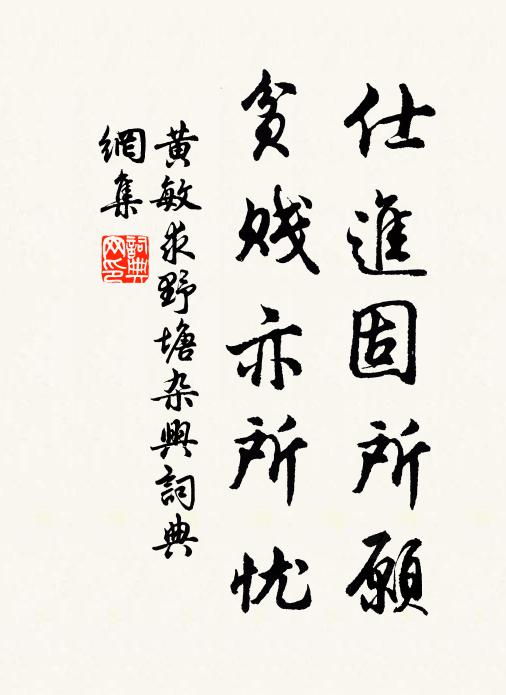 仕進固所願
貧賤亦所忧
黃敏求野塘杂興詞典
網集
詞典
网印